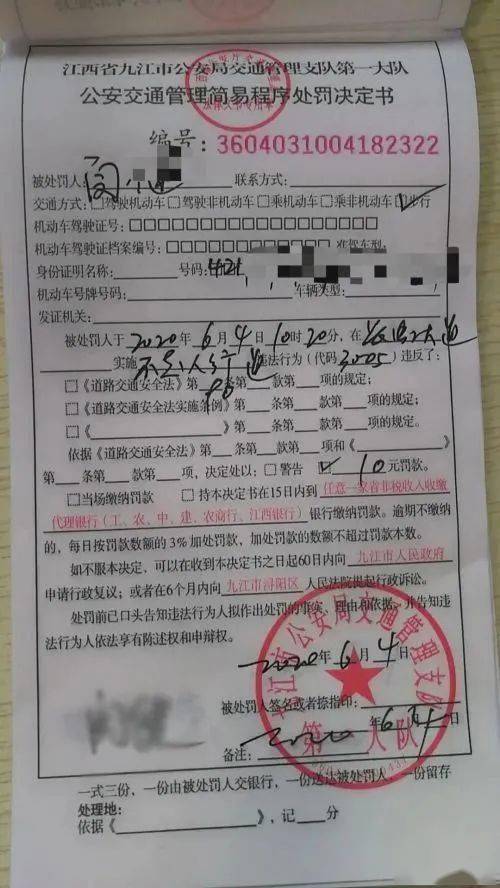 江西省九江市公安局交通管理支队第一大队
公安交通管理简易程序处罚决定书
编号:3604031004182322
被处罚人: 联系方式:
交通方式:□驾驶机动车□驾驶非机动车□乘机动车□乘非机动车☑步行
机动车驾驶证号:□□□□□□□□□□□□□□□□□□
机动车驾驶证档案编号:□□□□□□□□□□□□准驾车型:
身份证明名称: 号码:
机动车号牌号码: 车辆类型:
发证机关:
被处罚人于2020年6月4日10时20分,在 大道
实施不走人行道违法行为(代码3005)违反了:
□《道路交通安全法》第 条第 款第 项的规定;
□《道路交通安全法实施条例》第 条第 款第 项的规定;
□《 》第 条第 款第 项的规定。
依据《道路交通安全法》第 条第 款第 项和《 》
第 条第 款第 项,决定处以:□警告 ☑ 10元罚款。
□当场缴纳罚款 □持本决定书在15日内到任意一家省非税收入收缴
代理银行(工、农、中、建、农商行、江西银行)银行缴纳罚款。逾期不缴纳
的,每日按罚款数额的3%加处罚款,加处罚款的数额不超过罚款本数。
如不服本决定,可以在收到本决定书之日起60日内向九江市人民政府
申请行政复议;或者在6个月内向九江市浔阳区人民法院提起行政诉讼。
处罚前已口头告知违法行为人拟作出处罚的事实、理由和依据,并告知违
法行为人依法享有陈述权和申辩权。
2020年6月4日
被处罚人签名或者捺指印:
2020年6月4日
备注:
九江市公安局交通管理支队
第一大队
一式三份,一份由被处罚人交银行,一份送达被处罚人,一份留存
处理地:
依据《 》,记 分